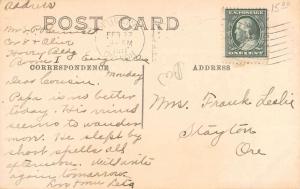 Address
15.00
POST CARD
FEB 12
U.S. POSTAGE
ONE CENT
Mrs
Cor 8th & Oliver
CORRESPONDENCE
ADDRESS
Monday
Dear Cousin.
Papa is no better
today. His mind
seems to wander
now. He slept by
short spells all
afternoon. Will write
again tomorrow.
Mrs. Frank Leslie
Stayton
Ore